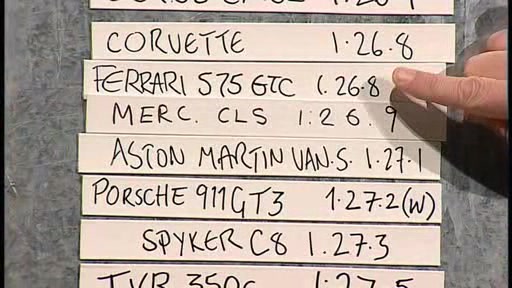 CORVETTE 1·26.8
FERRARI 575 GTC 1.26.8
MERC. CLS 1:26.9
ASTON MARTIN VAN.S. 1.27.1
PORSCHE 911 GT3 1.27.2(W)
SPYKER C8 1.27.3
TVR 350C 1:27.5